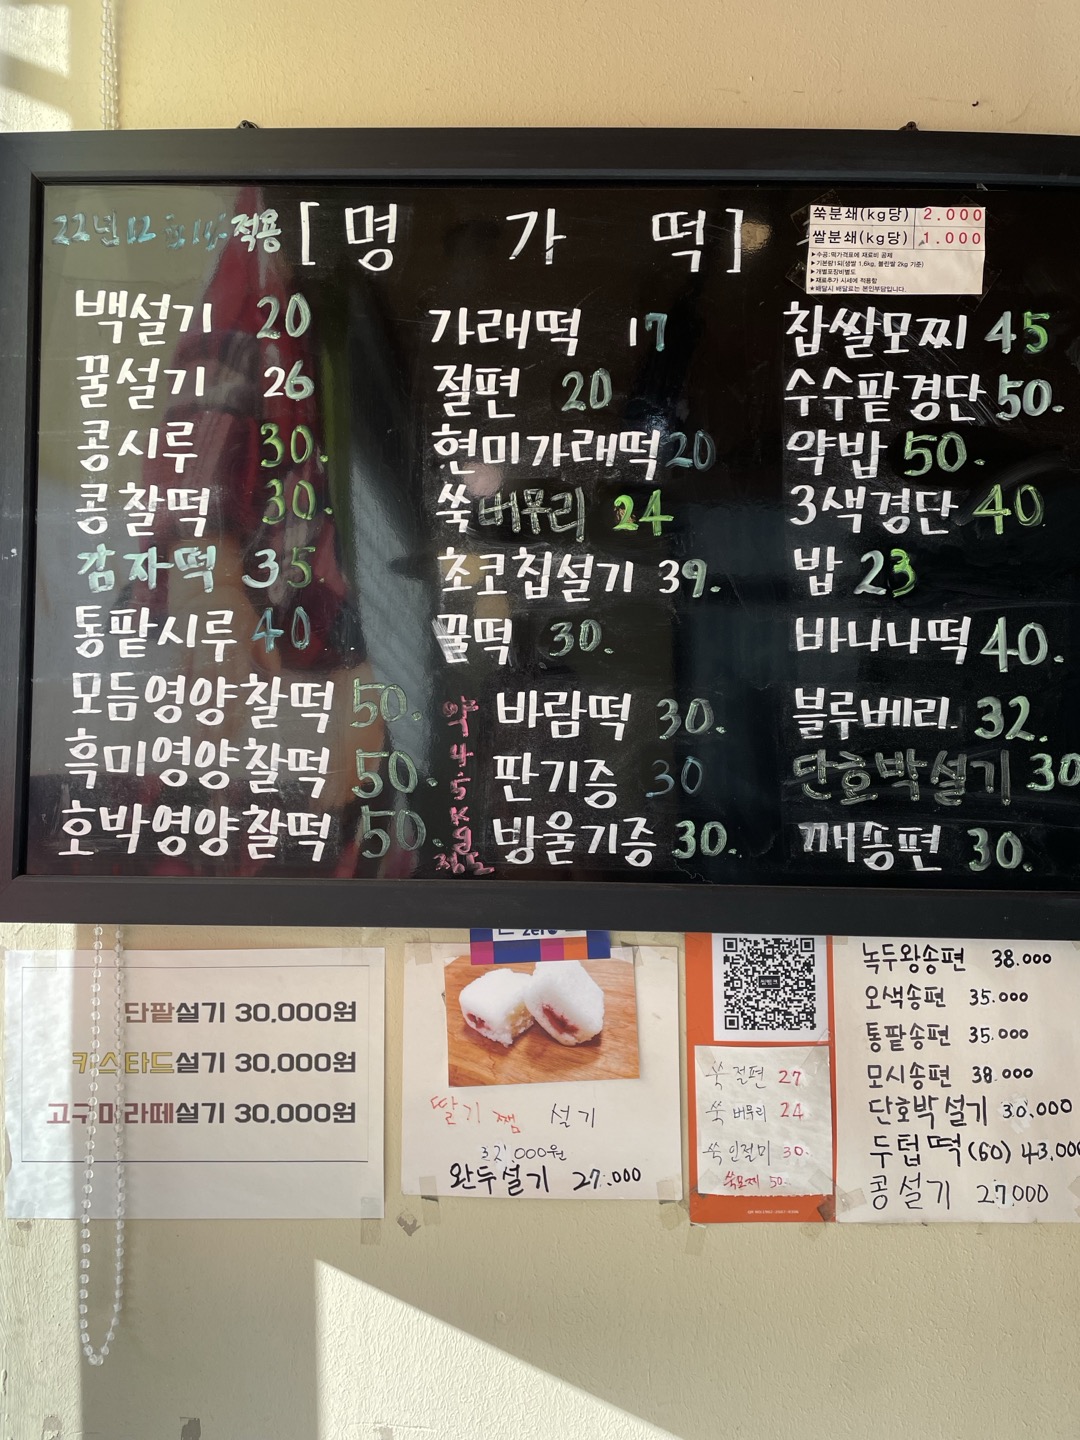 22년 12월 1일 적용 [명 가 떡]
쑥분쇄(kg당) 2.000
쌀분쇄(kg당) 1.000
▶수공:떡가격표에 재료비 공제
▶기본량1되(생쌀 1.6kg, 불린쌀 2kg 기준)
▶개별포장비별도
▶재료추가 시세에 적용함
★배달시 배달료는 본인부담입니다.
백설기 20
꿀설기 26
콩시루 30.
콩찰떡 30.
감자떡 35.
통팥시루 40
모듬영양찰떡 50.
흑미영양찰떡 50.
호박영양찰떡 50.
가래떡 17
절편 20
현미가래떡 20
쑥버무리 24
초코칩설기 39.
꿀떡 30.
약 45kg 정도
바람떡 30.
판기증 30
방울기증 30.
찹쌀모찌 45
수수팥경단 50.
약밥 50.
3색경단 40
밥 23
바나나떡 40.
블루베리 32.
단호박설기 30
깨송편 30.
단팥설기 30,000원
카스타드설기 30,000원
고구마라떼설기 30,000원
zero
딸기쨈 설기
원
완두설기 27.000
쑥절편 27
쑥버무리 24
쑥인절미 30.
쑥모찌 50.
녹두왕송편 38.000
오색송편 35.000
통팥송편 35.000
모시송편 38.000
단호박설기 30,000
두텁떡(60) 43,000
콩설기 27,000